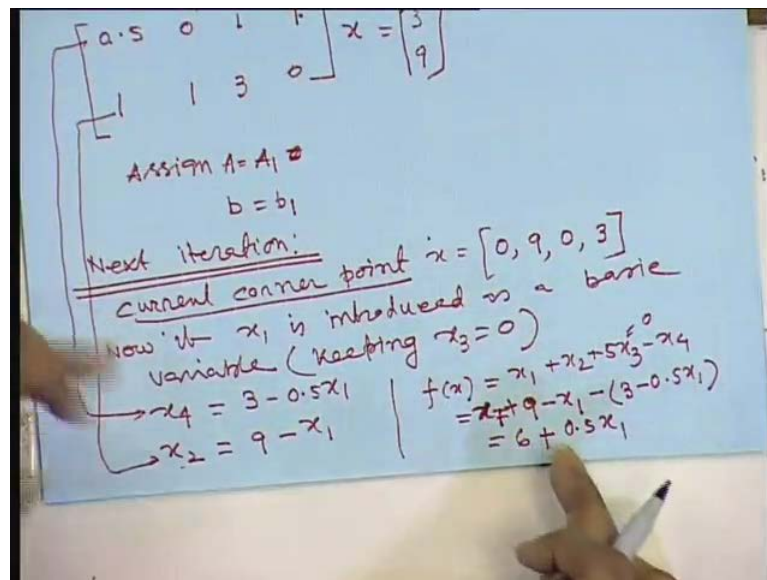 0.5 0 1 1 x = 3
1 1 3 0 9
Assign A = A1
b = b1
Next iteration:
current corner point x = [0, 9, 0, 3]
Now if x1 is introduced as a basic
variable (keeping x3 = 0)
x4 = 3 - 0.5x1
x2 = 9 - x1
f(x) = x1 + x2 + 5x3 - x4
0
= x1 + 9 - x1 - (3 - 0.5x1)
= 6 + 0.5x1